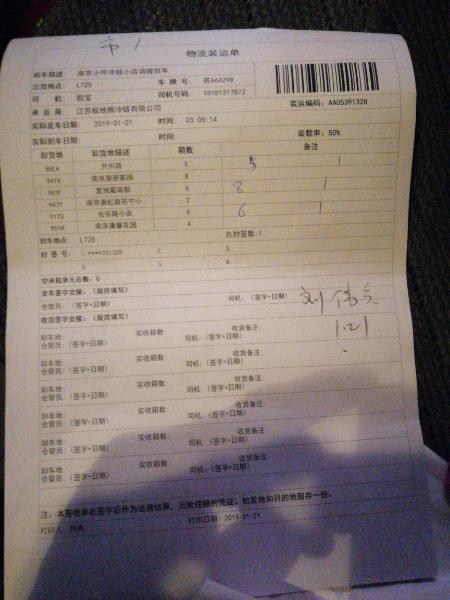 市1
物流装运单
班车描述: 南京小件冷链小店调拨班车
出货地点: L725 车牌号: 苏A64298
司机: 殷宝 司机号码: 18151317872
承运商: 江苏极地熊冷链有限公司 装运编码: AA05391328
实际发车日期: 2019-01-21 时间: 03:05:14
实际到车日期: 时间: 装载率: 50%
卸货地 卸货地描述 箱数 备注
升州路 5 5 1
941W 南京景明家园 8
951F 复地御南都 6 8 1
947Y 南京秦虹路苏宁小 2
917U 长乐路小店 6 6 1
951H 南京康馨花园 4
封车地点 L725 总封签数:1
封签号: 1.****331328 2. 3.
5. 6.
空承载单元总数: 0
发车签字交接: (规范填写)
仓管员: (签字+日期) 司机: (签字+日期)
1.21
收货签字交接: (规范填写)
卸车地 实收箱数: 收货备注:
仓管员: (签字+日期) 司机: (签字+日期)
卸车地 实收箱数: 收货备注:
仓管员: (签字+日期) 司机: (签字+日期)
卸车地 实收箱数: 收货备注:
仓管员: (签字+日期) 司机: (签字+日期)
卸车地 实收箱数: 收货备注:
仓管员: (签字+日期) 司机: (签字+日期)
卸车地 实收箱数: 收货备注:
仓管员: (签字+日期) 司机: (签字+日期)
卸车地 实收箱数: 收货备注:
仓管员: (签字+日期) 司机: (签字+日期)
注: 本签收单在签字后作为运费结算、出险理赔的凭证, 始发地和目的地留存一份。
打印人: 打印日期: 2019-01-21